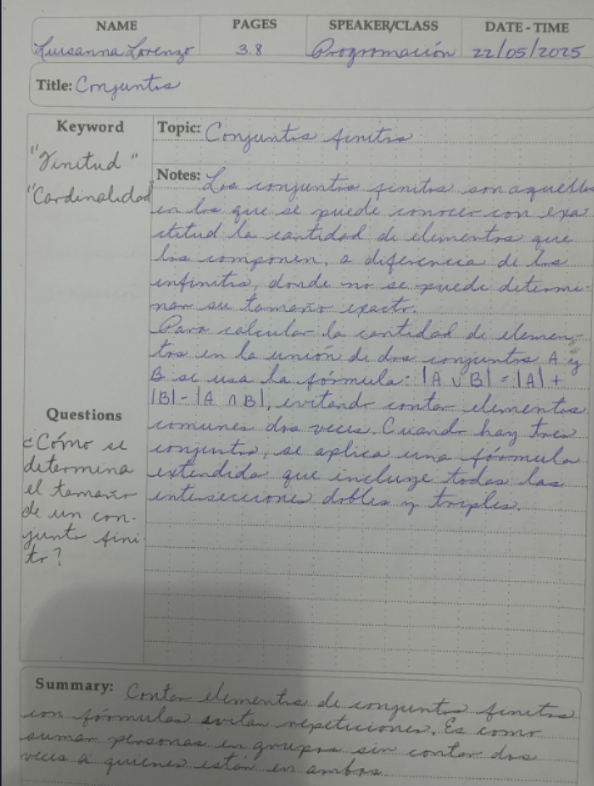 NAME PAGES SPEAKER/CLASS DATE - TIME
Luisanna Lorenzo 3.8 Programación 22/05/2025
Title: Conjuntos
Keyword
"Finitud"
"Cardinalidad
Topic: Conjuntos finitos
Notes: Los conjuntos finitos son aquellos
en los que se puede conocer con exa
ctitud la cantidad de elementos que
los componen, a diferencia de los
infinitos, donde no se puede determi-
nar su tamaño exacto.
Para calcular la cantidad de elemen-
tos en la unión de dos conjuntos A y
B se usa la fórmula: |A ∪ B| = |A| +
|B| - |A ∩ B|, evitando contar elementos
comunes dos veces. Cuando hay tres
conjuntos, se aplica una fórmula
extendida que incluye todas las
intersecciones dobles y triples.
Questions
¿Cómo se
determina
el tamaño
de un con-
junto fini-
to?
Summary: Contar elementos de conjuntos finitos
con fórmulas evitan repeticiones. Es como
sumar personas en grupos sin contar dos
veces a quienes están en ambos.